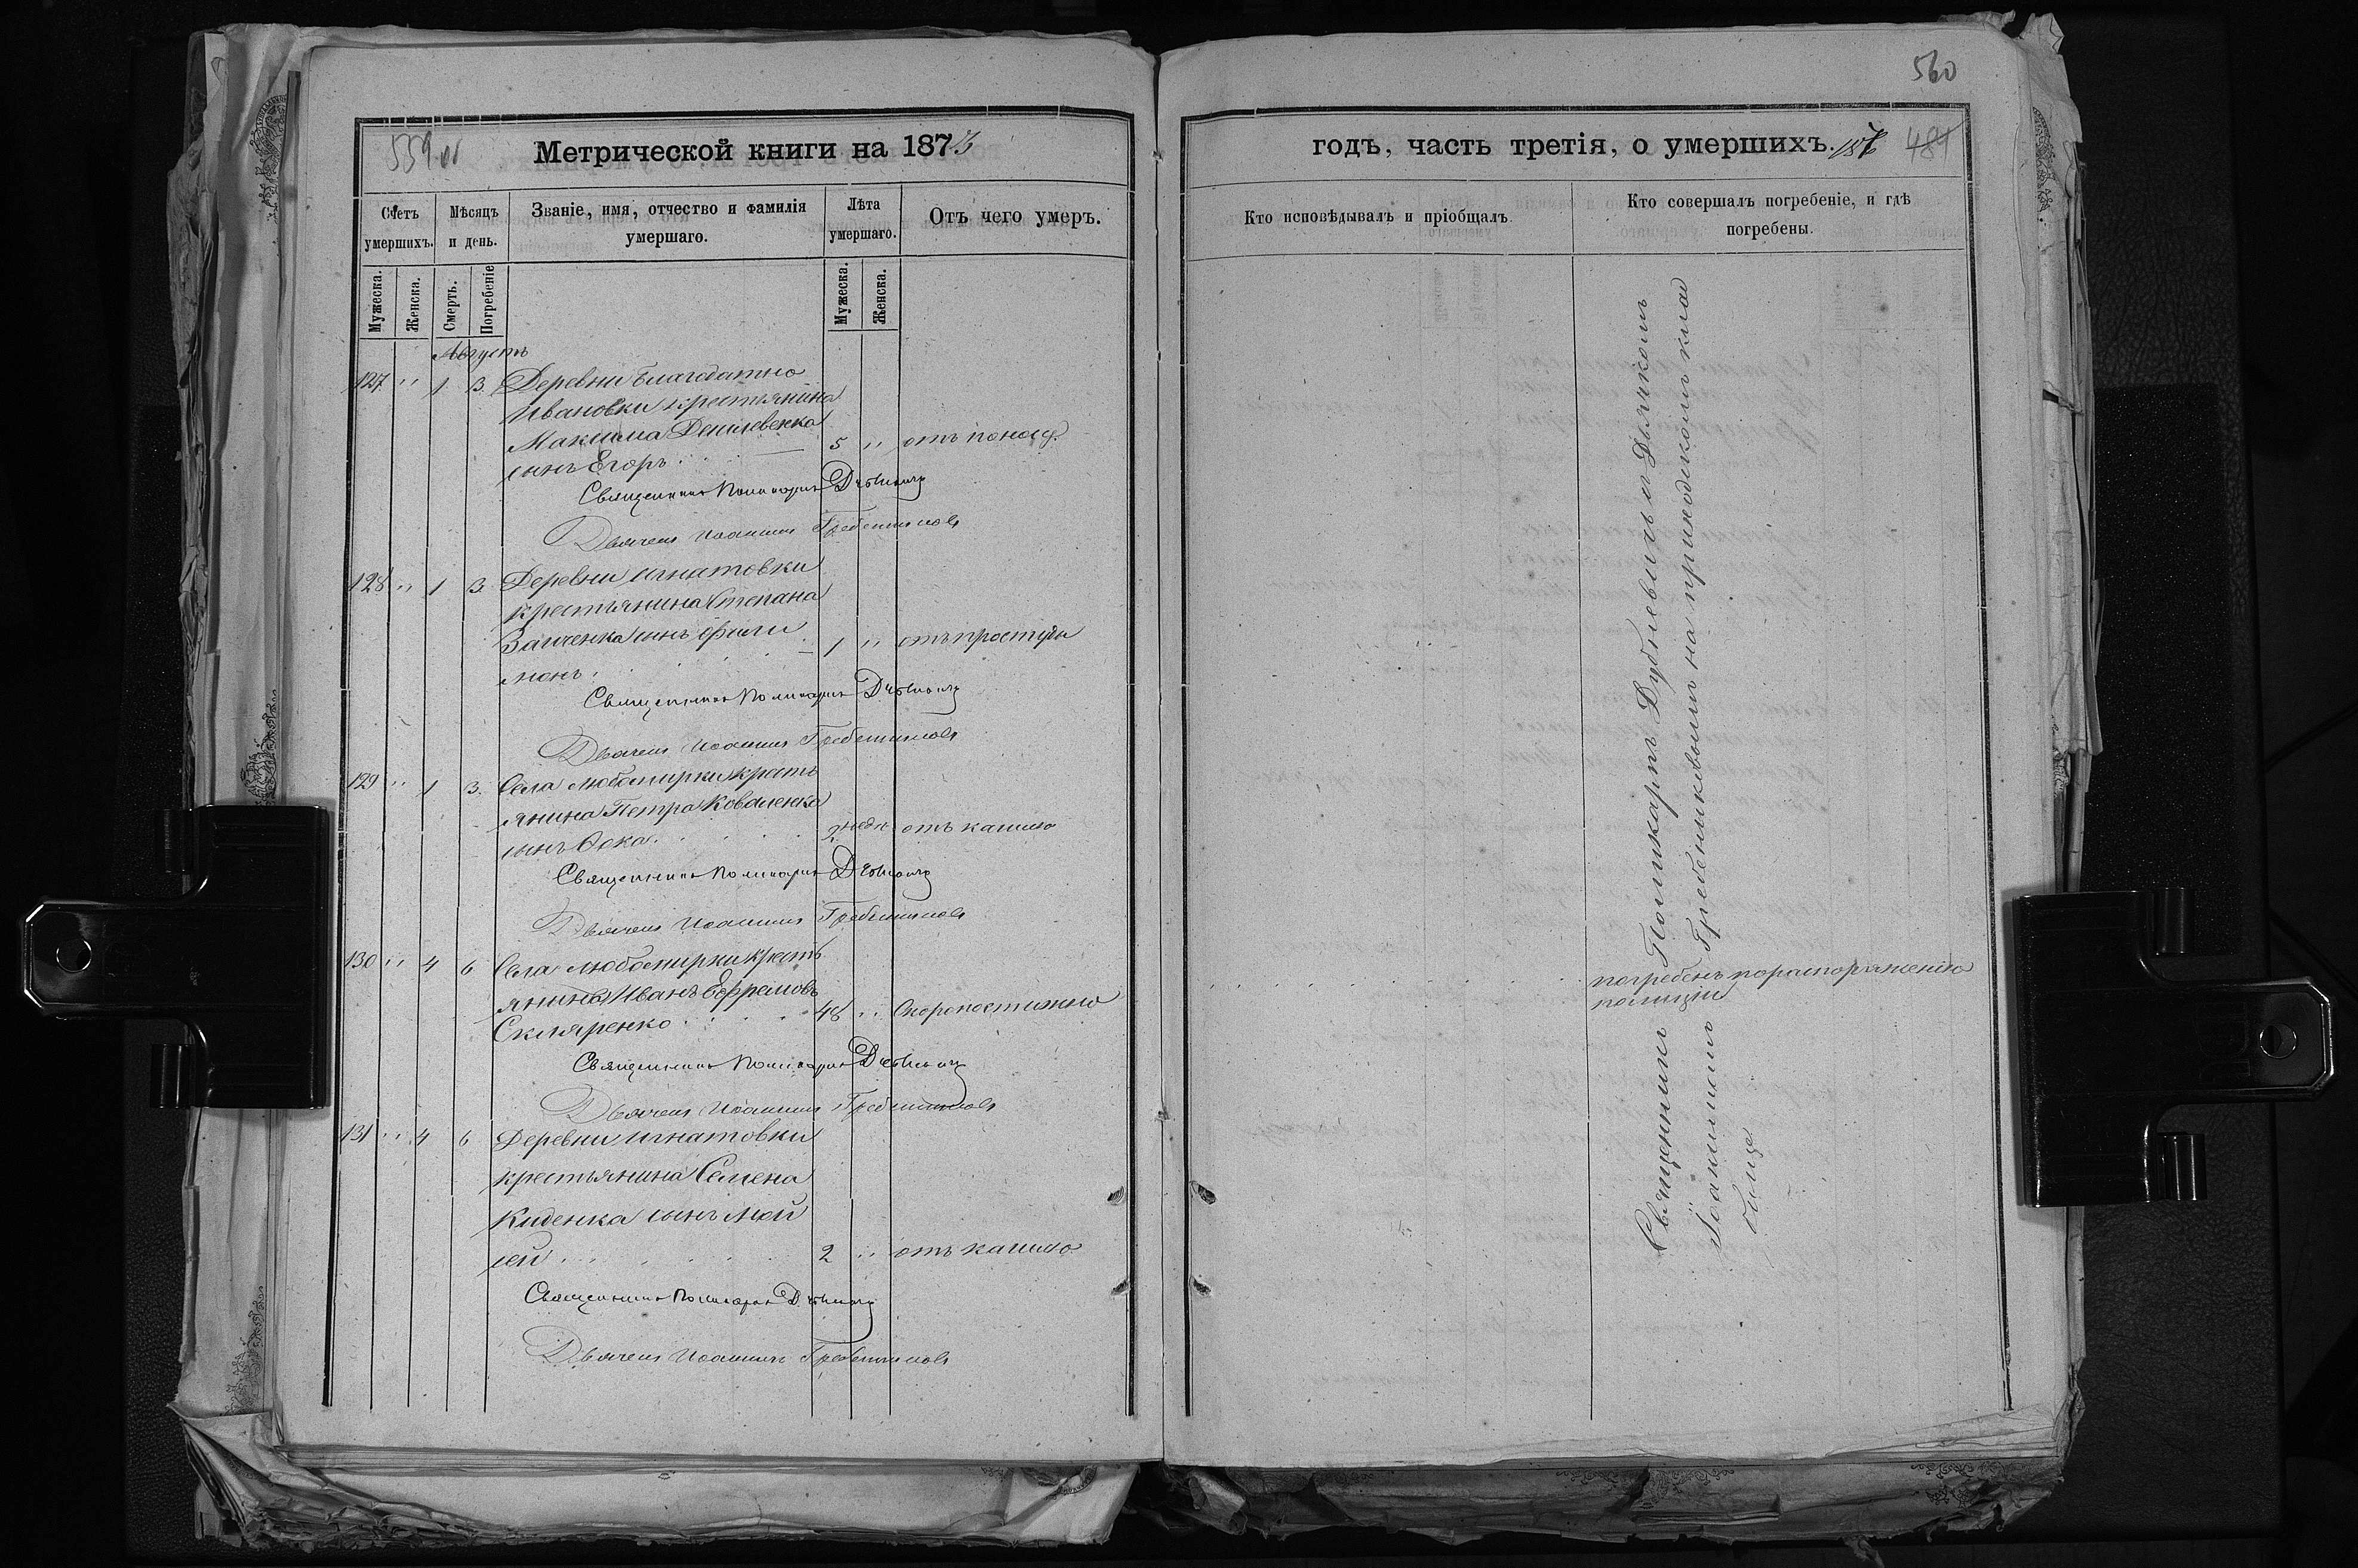 560
559 об
Метрической книги на 1873
годъ, часть третія, о умершихъ.
187
484
Счетъ умершихъ.
Мѣсяцъ и день.
Званіе, имя, отчество и фамилія умершаго.
Лѣта умершаго.
Отъ чего умеръ.
Кто исповѣдывалъ и пріобщалъ
Кто совершалъ погребеніе, и гдѣ погребены.
Мужеска.
Женска.
Смерть.
Погребеніе
Мужеска.
Женска.
Августъ
127 " 1 3. Деревни Благодатно
Ивановки крестьянина
Максима
сынъ Егоръ 5 " отъ понос.
Священникъ Поликарпъ Дубневичъ
Дьячекъ Иоакимъ Гребенниковъ
128 " 1 3 Деревни Игнатовки
крестьянина Степана
Заиченка сынъ Фили
монъ. 1 " отъ простуды
Священникъ Поликарпъ Дубневичъ
Дьячекъ Иоакимъ Гребенниковъ
129 " 1 3. Села Любомирки кресть
янина Петра Коваленка
сынъ Фока. 2 недл. отъ кашлю
Священникъ Поликарпъ Дубневичъ
Дьячекъ Иоакимъ Гребенниковъ
130 " 4 6 Села Любомирки кресть
янинъ Иванъ Ефремовъ
Скляренко 48 " Скоропостижно
погребенъ по распоряженію
полиціи
Священникъ Поликарпъ Дубневичъ
Дьячекъ Иоакимъ Гребенниковъ
131 " 4 6 Деревни Игнатовки
крестьянина Семена
Киденка сынъ Мой
сей 2 " отъ кашлю
Священникъ Поликарпъ Дубневичъ
Дьячекъ Иоакимъ Гребенниковъ
Священникъ Поликарпъ Дубневичъ и Дьячкомъ
Іоакимомъ Гребенниковымъ на приходскомъ клад
бищѣ